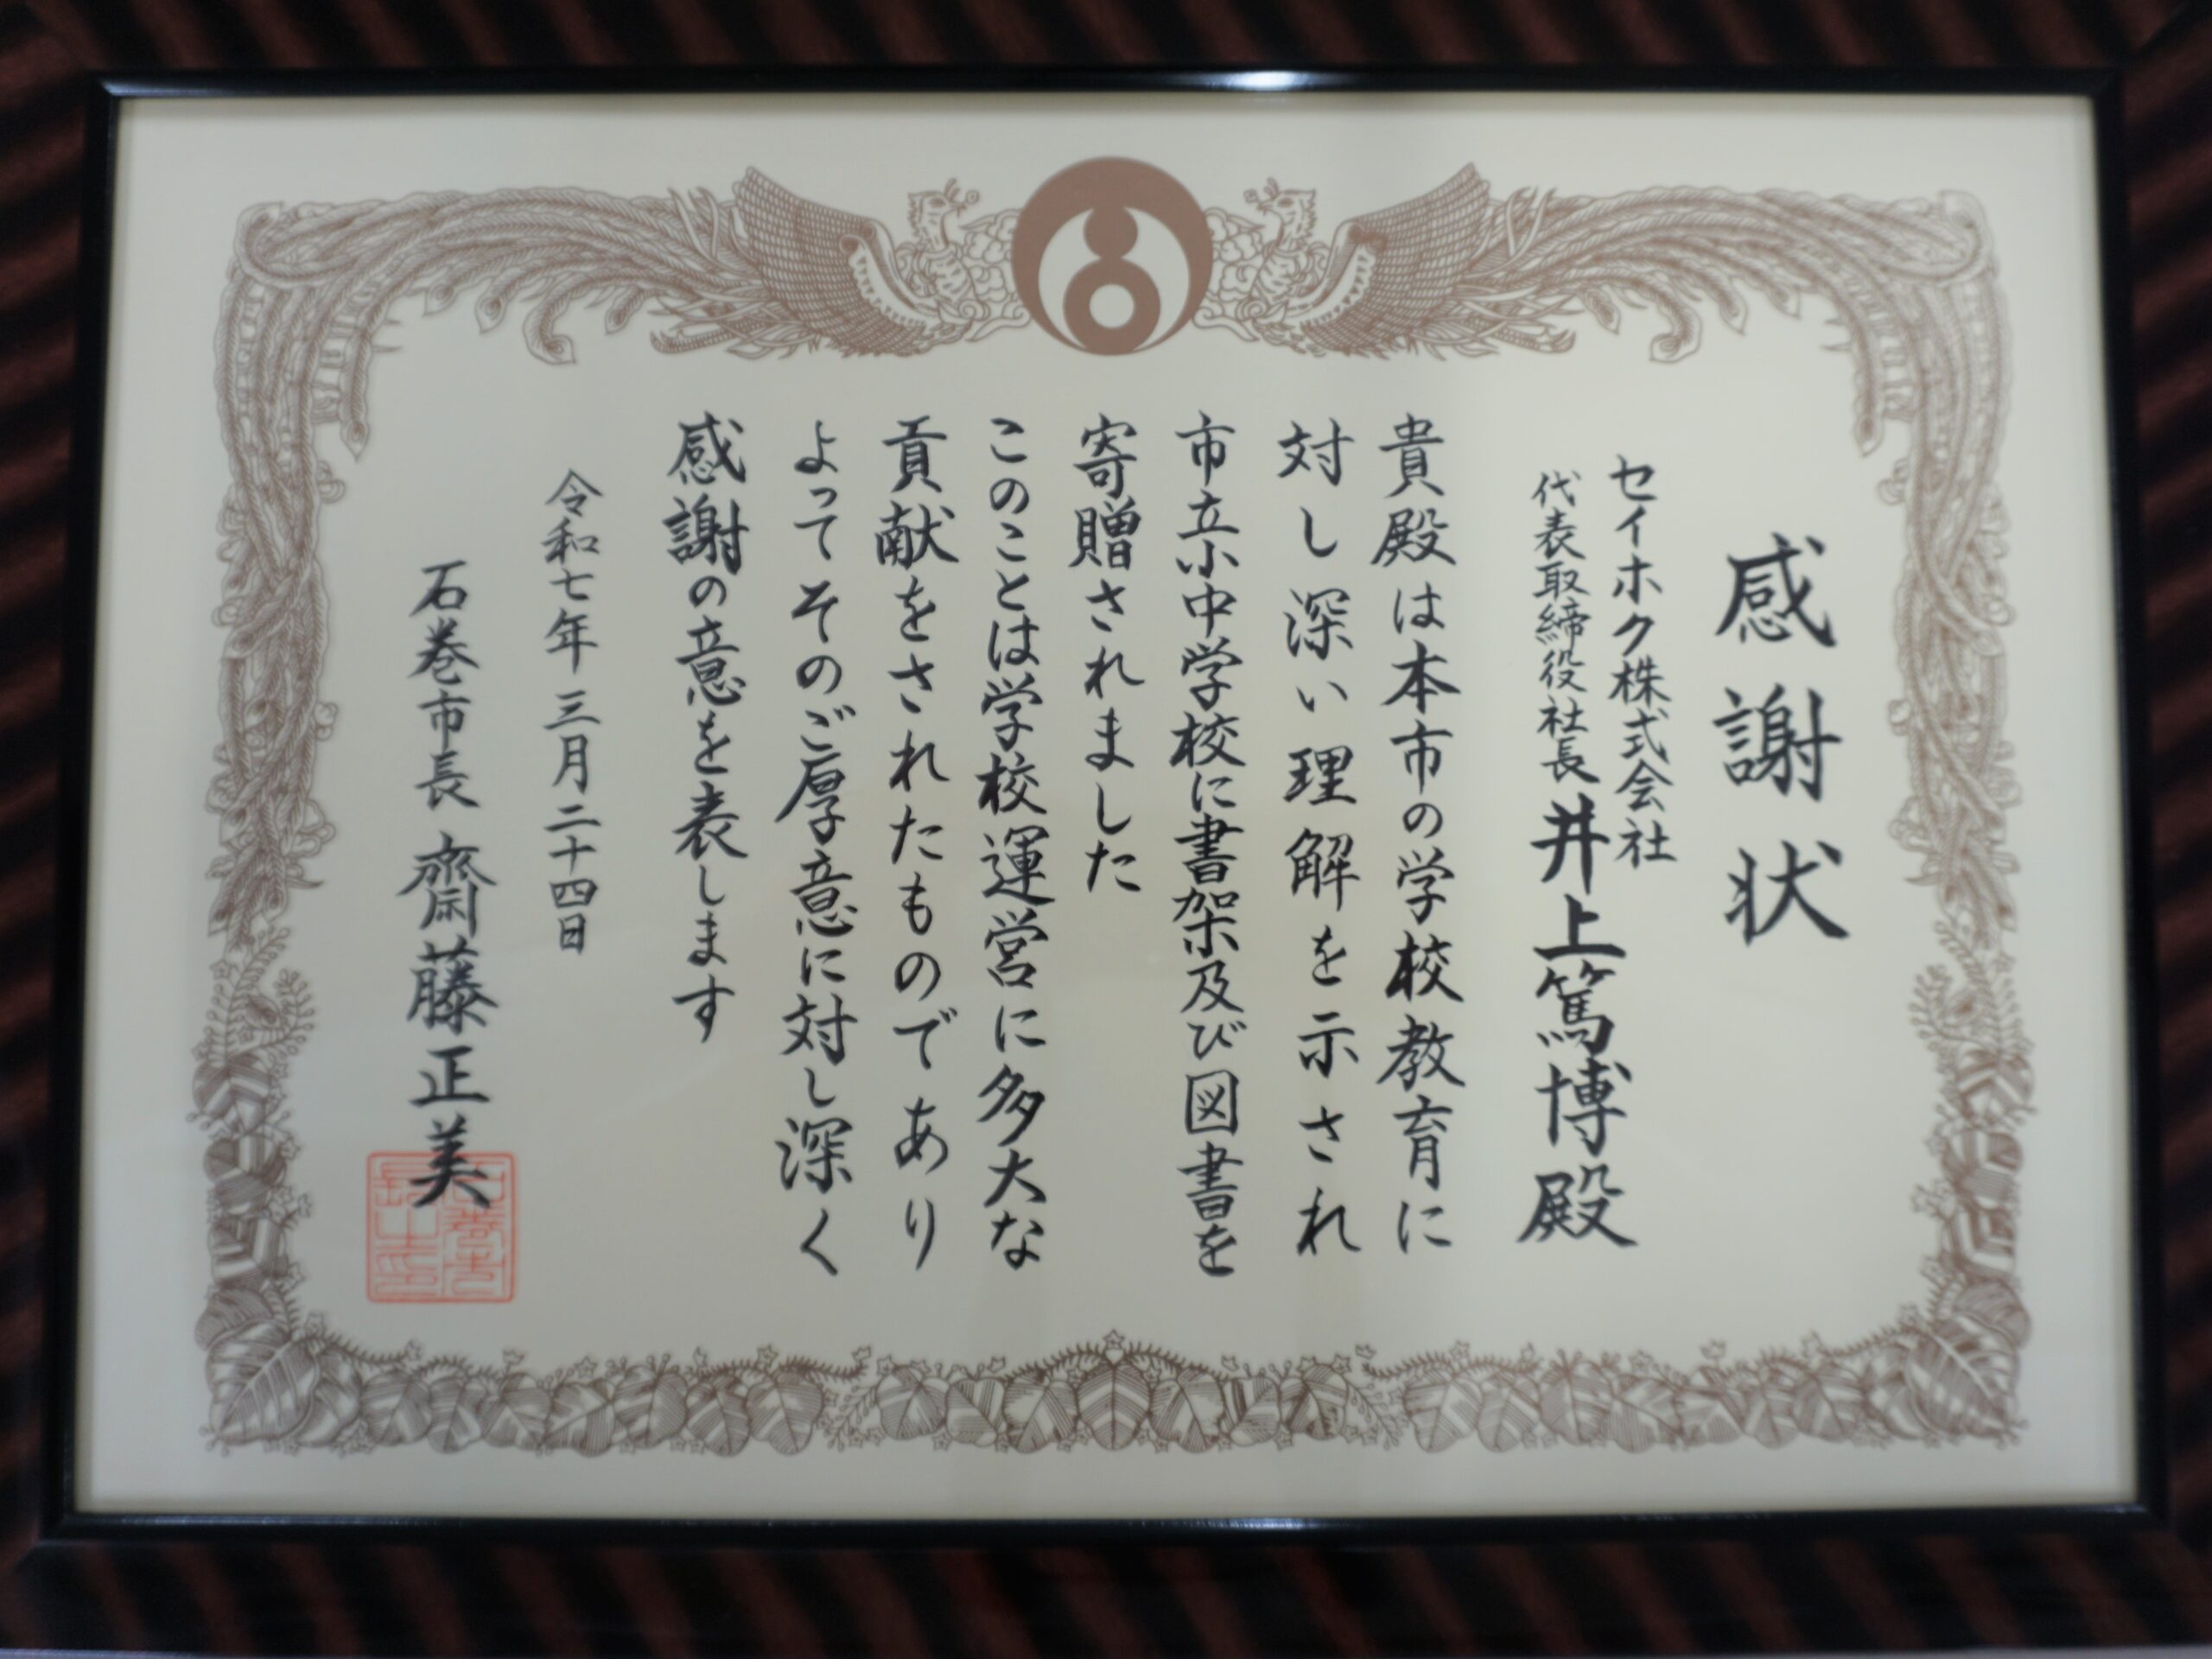 感謝状
セイホク株式会社
代表取締役社長 井上篤博殿
貴殿は本市の学校教育に
対し深い理解を示され
市立小中学校に書架及び図書を
寄贈されました
このことは学校運営に多大な
貢献をされたものであり
よってそのご厚意に対し深く
感謝の意を表します
令和七年三月二十四日
石巻市長 齋藤正美
石巻市長之印